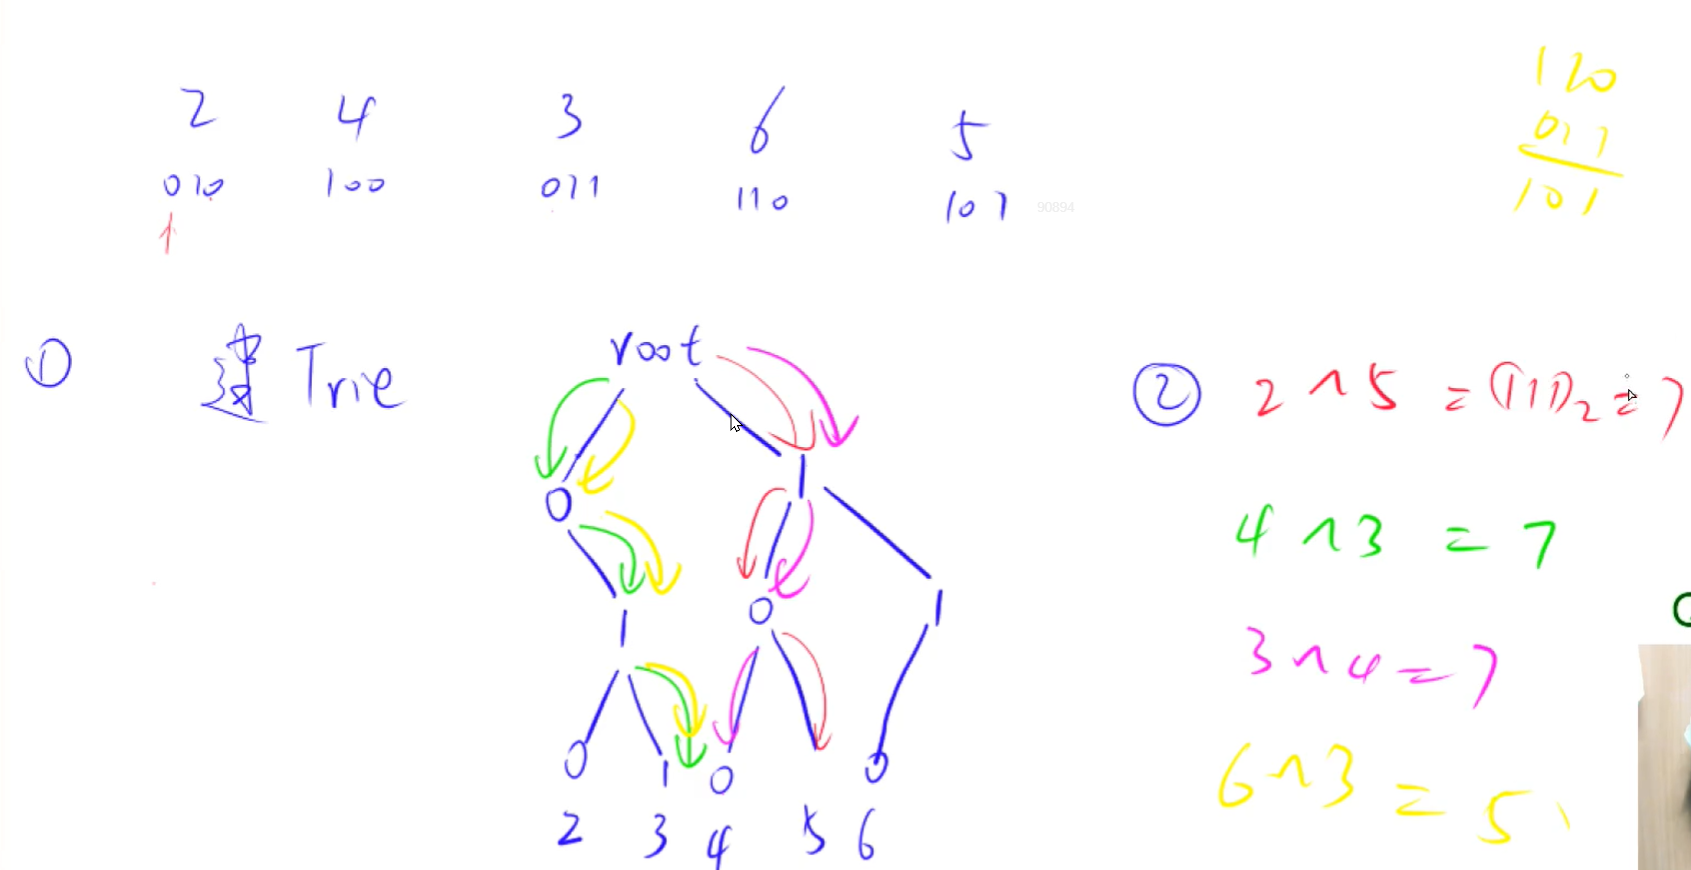 2 4 3 6 5
010 100 011 110 101
1
90894
110
011
101
① 建 Trie
root
0 1
1 0 1
0 1 0 0
2 3 4 5 6
② 2 ^ 5 = (111)₂ = 7
4 ^ 3 = 7
3 ^ 4 = 7
6 ^ 3 = 5